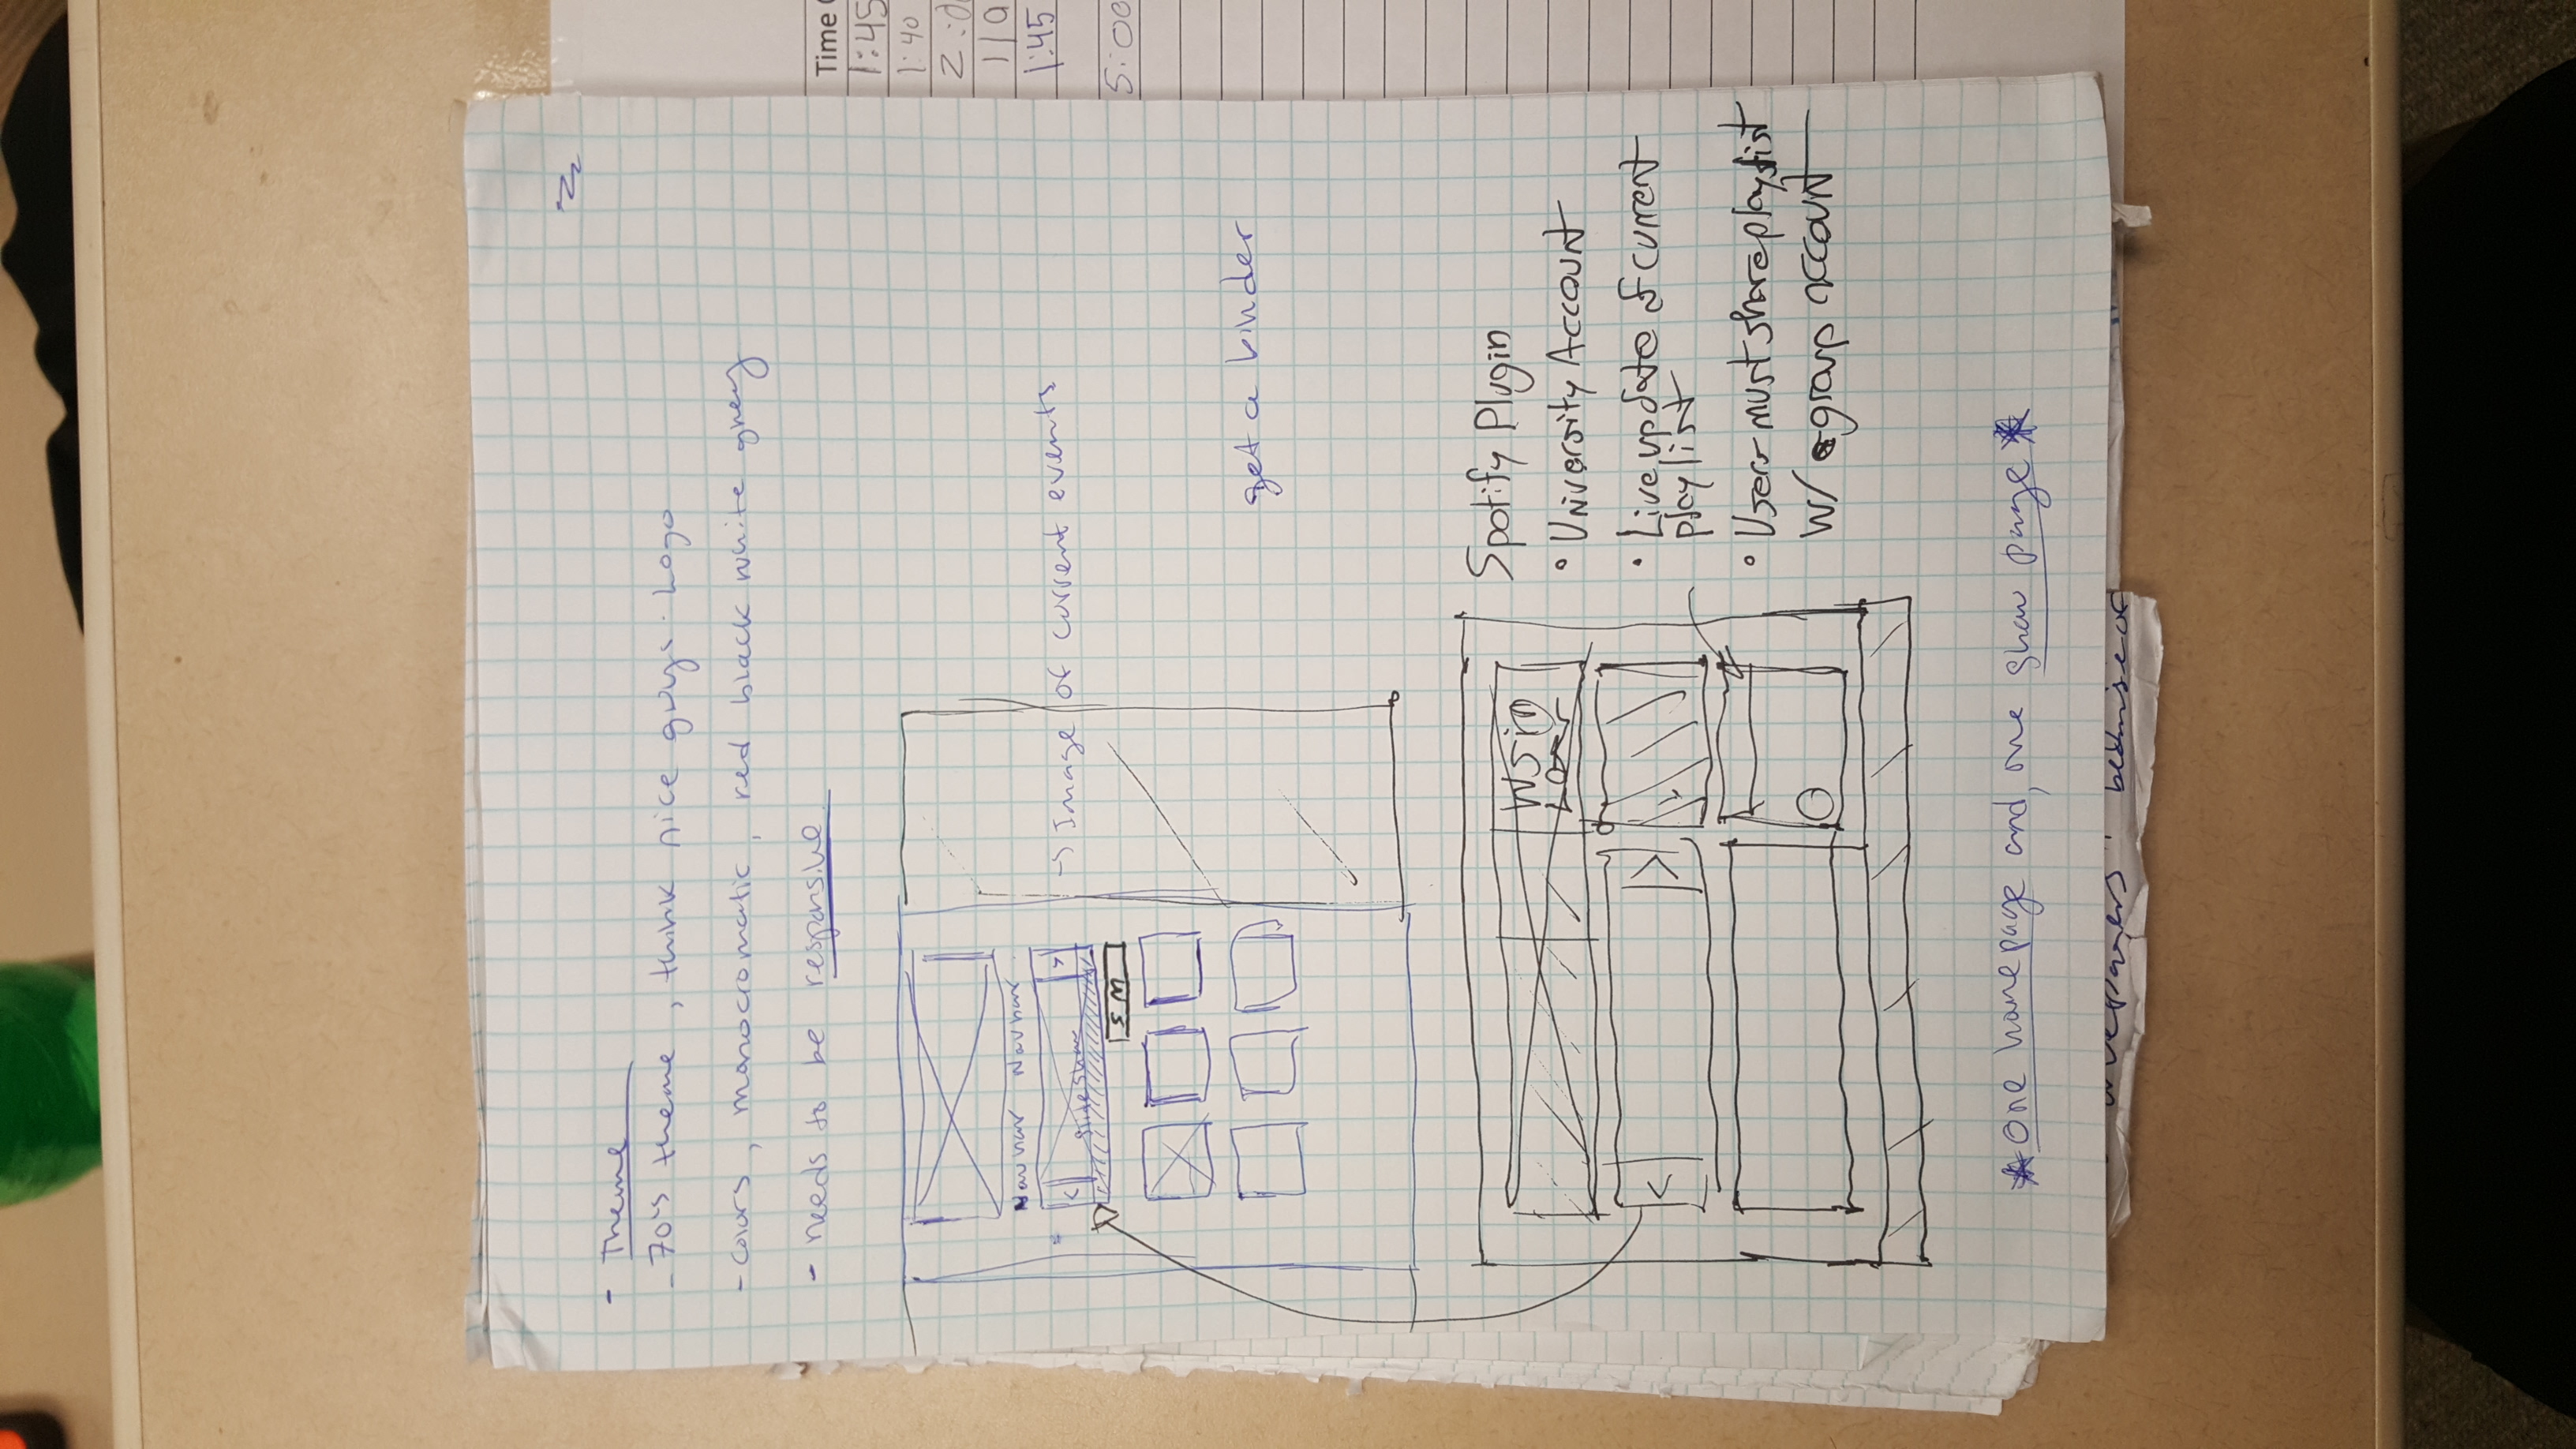 - Theme
- 70's theme, think nice guys. Logo
- colors, monocromatic, red black white grey
- needs to be responsive
Navbar Navbar
< slideshow >
-> Image of current events
SM
get a binder
< >
Spotify Plugin
• University Account
• Live update of current
playlist
• Users must share playlist
w/ group account
*One homepage and, one show page*
because of
Time
1:45
1:40
1:45
5:00